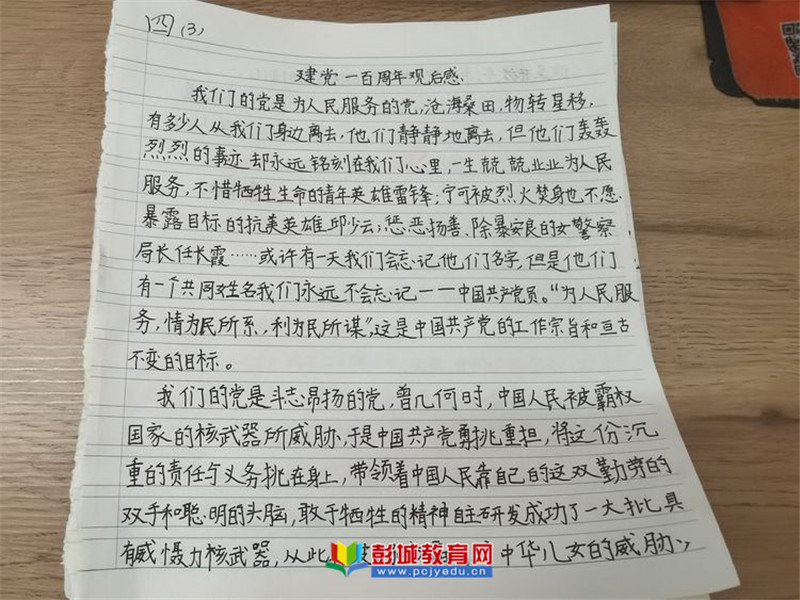 四(3)
建党一百周年观后感
我们的党是为人民服务的党,沧海桑田,物转星移,
有多少人从我们身边离去,他们静静地离去,但他们轰轰
烈烈的事迹却永远铭刻在我们心里,一生兢兢业业为人民
服务,不惜牺牲生命的青年英雄雷锋;宁可被烈火焚身也不愿
暴露目标的抗美英雄邱少云;惩恶扬善、除暴安良的女警察
局长任长霞……或许有一天我们会忘记他们名字,但是他们
有一个共同姓名我们永远不会忘记——中国共产党员。“为人民服
务,情为民所系,利为民所谋”,这是中国共产党的工作宗旨和亘古
不变的目标。
我们的党是斗志昂扬的党,曾几何时,中国人民被霸权
国家的核武器所威胁,于是中国共产党勇挑重担,将这份沉
重的责任与义务挑在身上,带领着中国人民靠自己的这双勤劳的
双手和聪明的头脑,敢于牺牲的精神自主研发成功了一大批具
有威慑力核武器,从此 中华儿女的威胁、
彭城教育网
www.pcjyedu.cn